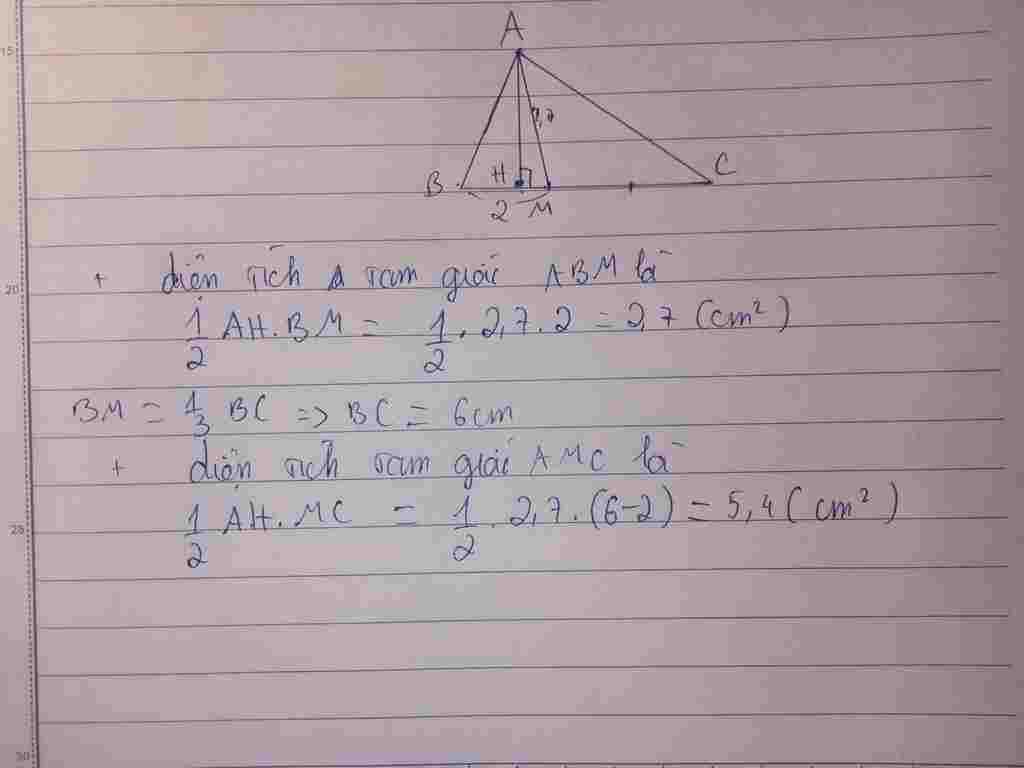 15
A
2,7
B H C
2 M
20
+ diện tích Δ tam giác ABM là
1/2 AH.BM = 1/2 . 2,7 . 2 = 2,7 (cm²)
BM = 1/3 BC => BC = 6cm
+ diện tích tam giác AMC là
1/2 AH.MC = 1/2 . 2,7 . (6-2) = 5,4 (cm²)
25
30